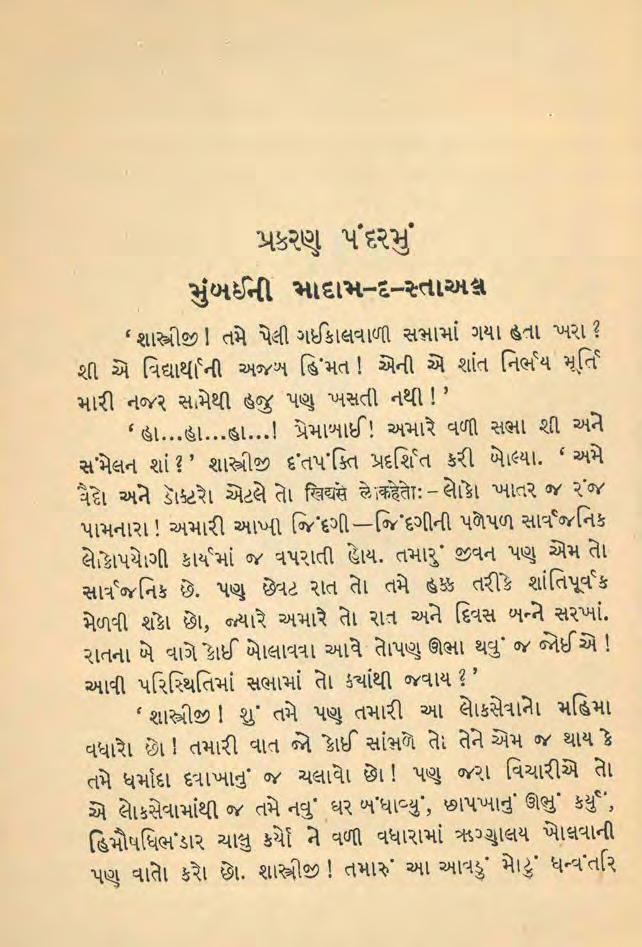 પ્રકરણ પંદરમું
મુંબઈની માદામ-દ-સ્તાઅલ
‘શાસ્ત્રીજી! તમે પેલી ગઈકાલવાળી સભામાં ગયા હતા ખરા?
શી એ વિદ્યાર્થીની અજબ હિંમત! એની એ શાંત નિર્ભય મૂર્તિ
મારી નજર સામેથી હજુ પણ ખસતી નથી!’
‘હા...હા...હા...! પ્રેમાબાઈ! અમારે વળી સભા શી અને
સંમેલન શાં?’ શાસ્ત્રીજી દંતપંક્તિ પ્રદર્શિત કરી બોલ્યા. ‘અમે
વૈદો અને ડૉક્ટરો એટલે તો खिद्यसे लोकहेतोः–લોકો ખાતર જ રંજ
પામનારા! અમારી આખી જિંદગી—જિંદગીની પળેપળ સાર્વજનિક
લોકોપયોગી કાર્યમાં જ વપરાતી હોય. તમારું જીવન પણ એમ તો
સાર્વજનિક છે. પણ છેવટ રાત તો તમે હક્ક તરીકે શાંતિપૂર્વક
મેળવી શકો છો, જ્યારે અમારે તો રાત અને દિવસ બન્ને સરખાં.
રાતના બે વાગે કોઈ બોલાવવા આવે તોપણ ઊભા થવું જ જોઈએ!
આવી પરિસ્થિતિમાં સભામાં તો ક્યાંથી જવાય?’
‘શાસ્ત્રીજી! શું તમે પણ તમારી આ લોકસેવાનો મહિમા
વધારો છો! તમારી વાત જો કોઈ સાંભળે તો તેને એમ જ થાય કે
તમે ધર્માદા દવાખાનું જ ચલાવો છો! પણ જરા વિચારીએ તો
એ લોકસેવામાંથી જ તમે નવું ઘર બંધાવ્યું, છાપખાનું ઊભું કર્યું,
હિમૌષધિભંડાર ચાલુ કર્યો ને વળી વધારામાં ઋગ્ણાલય ખોલવાની
પણ વાતો કરો છો. શાસ્ત્રીજી! તમારું આ આવડું મોટું ધન્વંતરિ